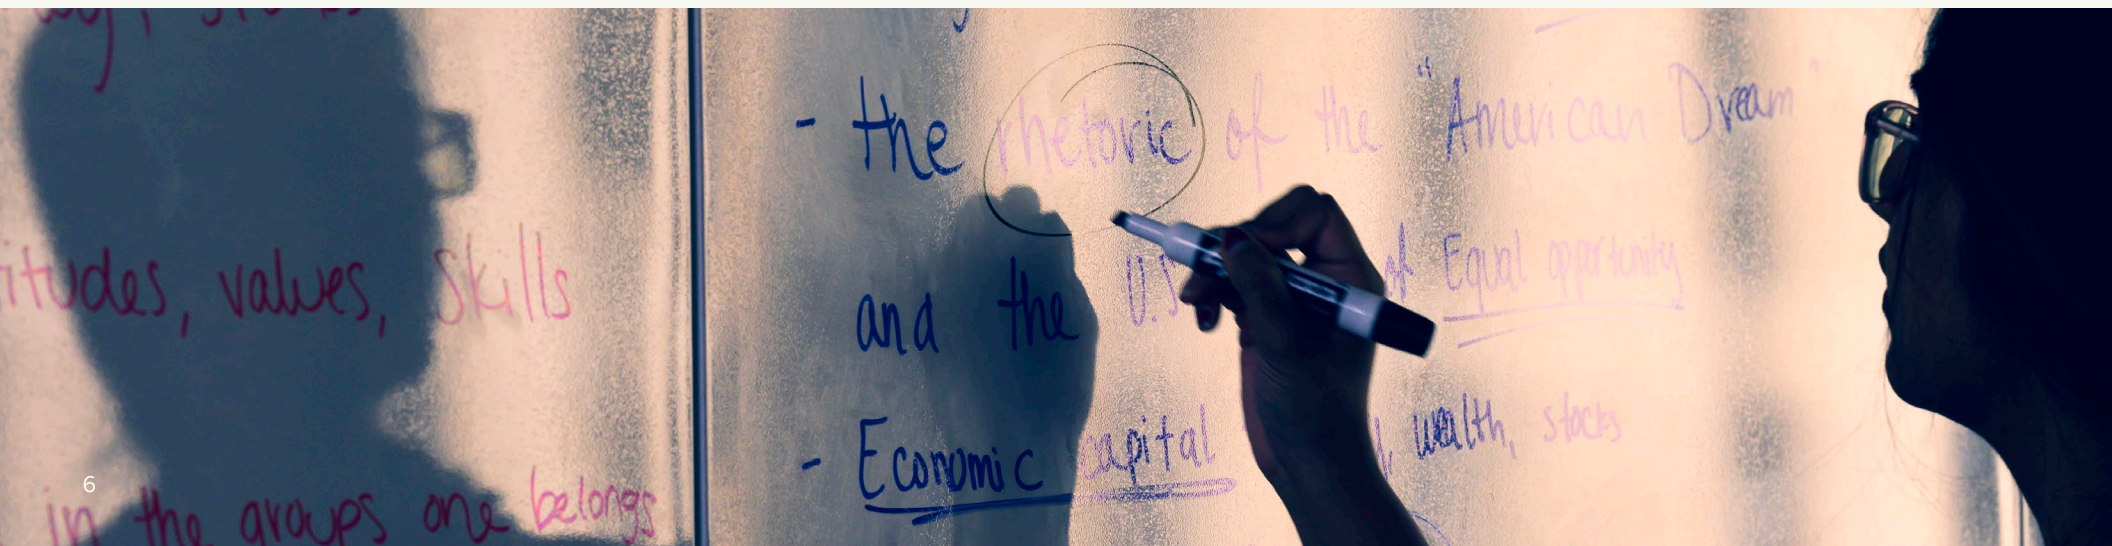 itudes, values, skills
in the groups one belongs
- the rhetoric of the "American Dream"
and the U.S of Equal opportunity
- Economic capital wealth, stocks
6